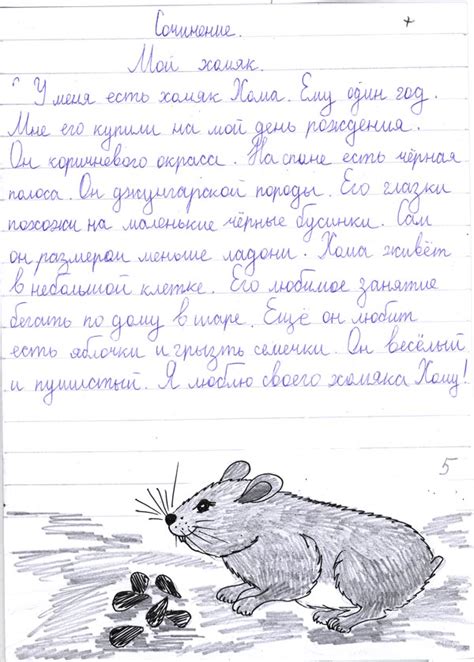 Сочинение.
Мой хомяк.
У меня есть хомяк Хома. Ему один год.
Мне его купили на мой день рождения.
Он коричневого окраса. На спине есть чёрная
полоса. Он джунгарской породы. Его глазки
похожи на маленькие чёрные бусинки. Сам
он размером меньше ладони. Хома живёт
в небольшой клетке. Его любимое занятие
бегать по дому в шаре. Ещё он любит
есть яблочки и грызть семечки. Он весёлый
и пушистый. Я люблю своего хомяка Хому!
5